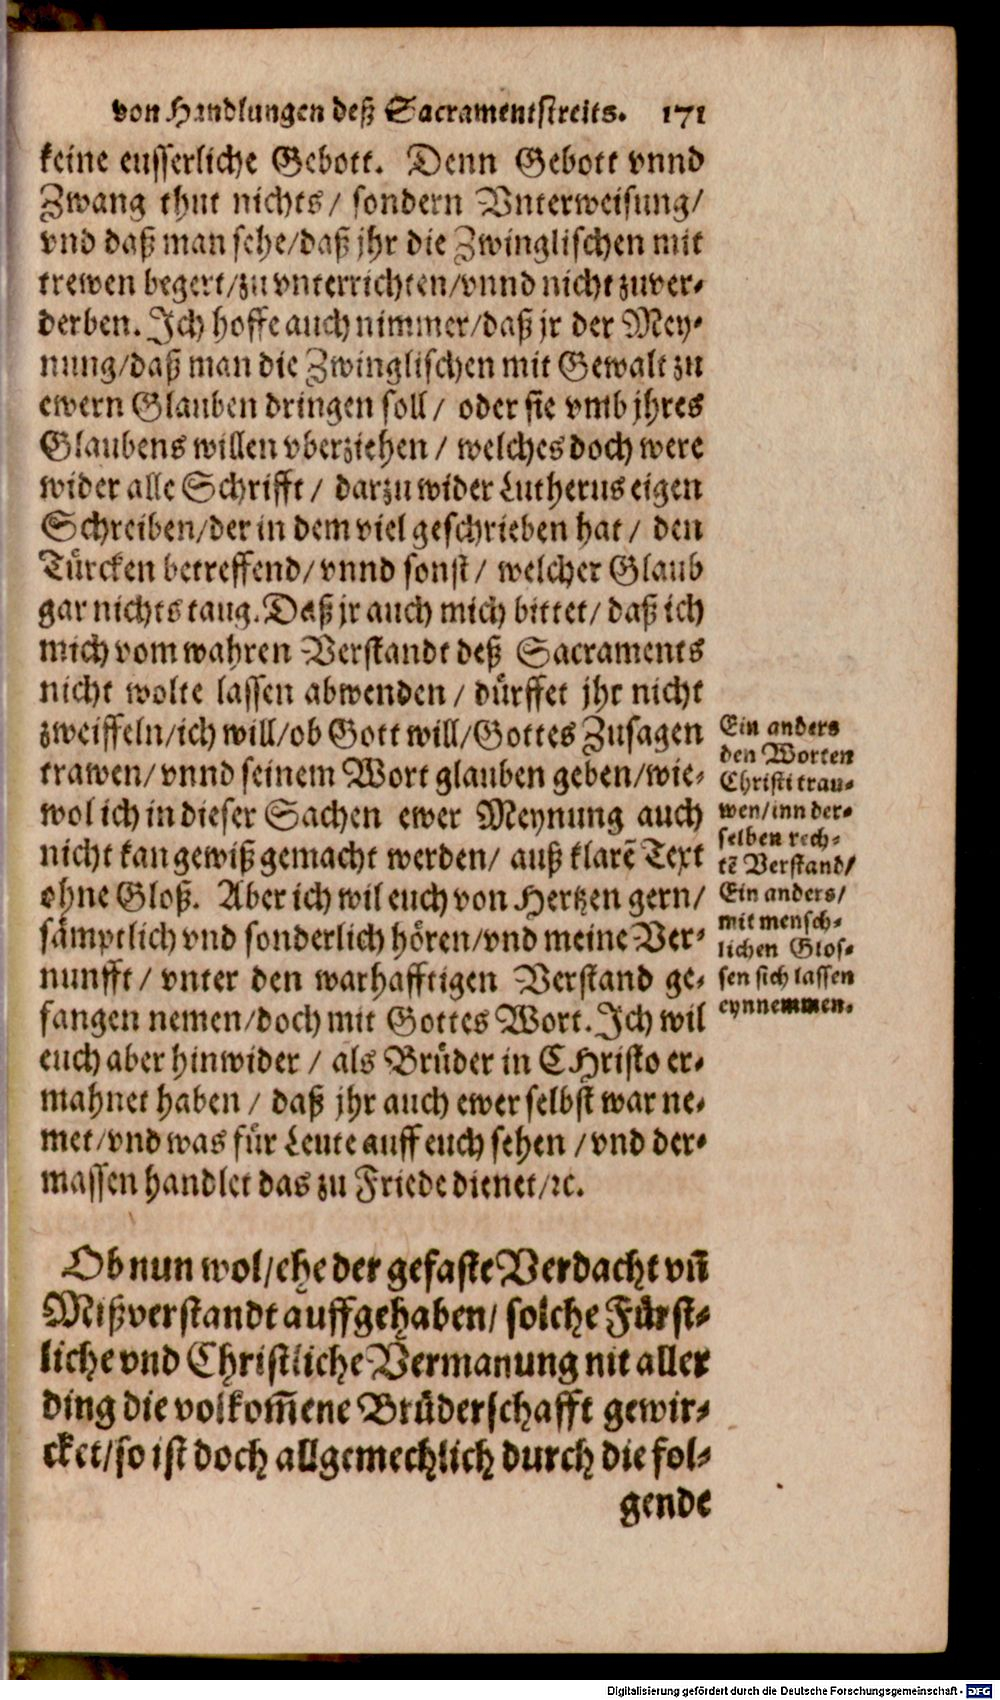 von Handlungen deß Sacramentstreits. 171
keine eusserliche Gebott. Denn Gebott vnnd
Zwang thut nichts/ sondern Vnterweisung/
vnd daß man sehe/daß jhr die Zwinglischen mit
trewen begert/zu vnterrichten/vnnd nicht zuver-
derben. Ich hoffe auch nimmer/daß jr der Mey-
nung/daß man die Zwinglischen mit Gewalt zu
ewern Glauben dringen soll/ oder sie vmb jhres
Glaubens willen vberziehen/ welches doch were
wider alle Schrifft/ darzu wider Lutherus eigen
Schreiben/der in dem viel geschrieben hat/ den
Türcken betreffend/vnnd sonst/ welcher Glaub
gar nichts taug. Daß jr auch mich bittet/daß ich
mich vom wahren Verstandt deß Sacraments
nicht wolte lassen abwenden/ dürffet jhr nicht
zweiffeln/ich will/ob Gott will/Gottes Zusagen
trawen/vnnd seinem Wort glauben geben/wie-
wol ich in dieser Sachen ewer Meynung auch
nicht kan gewiß gemacht werden/ auß klarẽ Text
ohne Gloß. Aber ich wil euch von Hertzen gern/
sämptlich vnd sonderlich hören/vnd meine Ver-
nunfft/ vnter den warhafftigen Verstand ge-
fangen nemen/doch mit Gottes Wort. Ich wil
euch aber hinwider/ als Brüder in CHristo er-
mahnet haben/ daß jhr auch ewer selbst war ne-
met/vnd was für Leute auff euch sehen/vnd der-
massen handlet das zu Friede dienet/ꝛc.
Ein anders
den Worten
Christi trau-
wen/inn der-
selben rech-
tẽ Verstand/
Ein anders/
mit mensch-
lichen Glos-
sen sich lassen
eynnemmen.
Ob nun wol/ehe der gefaste Verdacht vñ
Mißverstandt auffgehaben/ solche Fürst-
liche vnd Christliche Vermanung nit aller
ding die volkom̃ene Brüderschafft gewir-
cket/so ist doch allgemechlich durch die fol-
gende
Digitalisierung gefördert durch die Deutsche Forschungsgemeinschaft - DFG